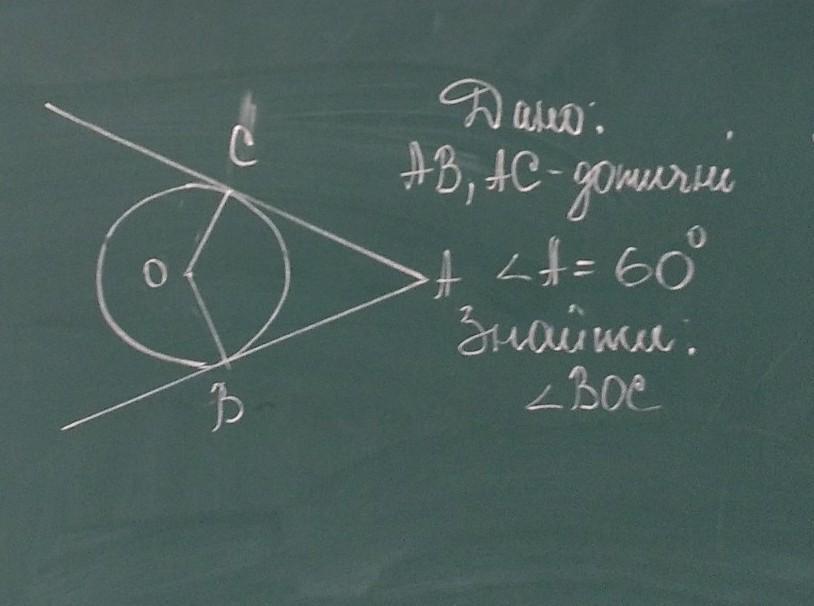 C
O
B
A
Дано:
AB, AC - дотичні
∠A = 60°
Знайти:
∠BOC